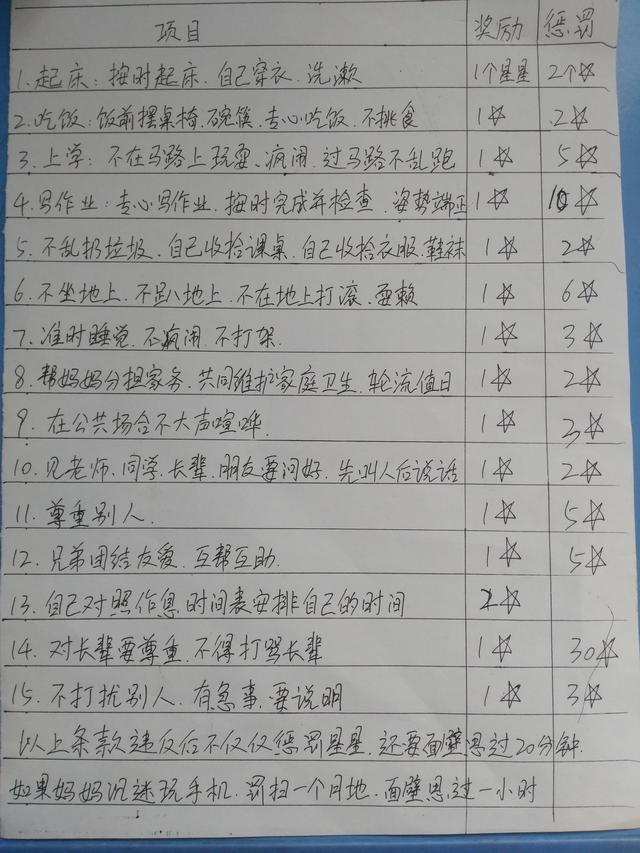 项目 奖励 惩罚
1.起床:按时起床.自己穿衣.洗漱 1个星星 2个☆
2.吃饭:饭前摆桌椅.碗筷.专心吃饭.不挑食 1☆ 2☆
3.上学:不在马路上玩耍、疯闹.过马路不乱跑 1☆ 5☆
4.写作业:专心写作业.按时完成并检查.姿势端正 1☆ 10☆
5.不乱扔垃圾.自己收拾课桌.自己收拾衣服.鞋袜 1☆ 2☆
6.不坐地上.不趴地上.不在地上打滚.耍赖 1☆ 6☆
7.准时睡觉.不疯闹.不打架. 1☆ 3☆
8.帮妈妈分担家务.共同维护家庭卫生.轮流值日 1☆ 2☆
9.在公共场合不大声喧哗. 1☆ 3☆
10.见老师.同学.长辈.朋友要问好.先叫人后说话 1☆ 2☆
11.尊重别人. 1☆ 5☆
12.兄弟团结友爱.互帮互助. 1☆ 5☆
13.自己对照作息时间表安排自己的时间 2☆
14.对长辈要尊重.不得打骂长辈 1☆ 30☆
15.不打扰别人.有急事.要说明 1☆ 3☆
以上条款违反后不仅仅惩罚星星.还要面壁思过20分钟.
如果妈妈沉迷玩手机.罚扫一个月地.面壁思过一小时